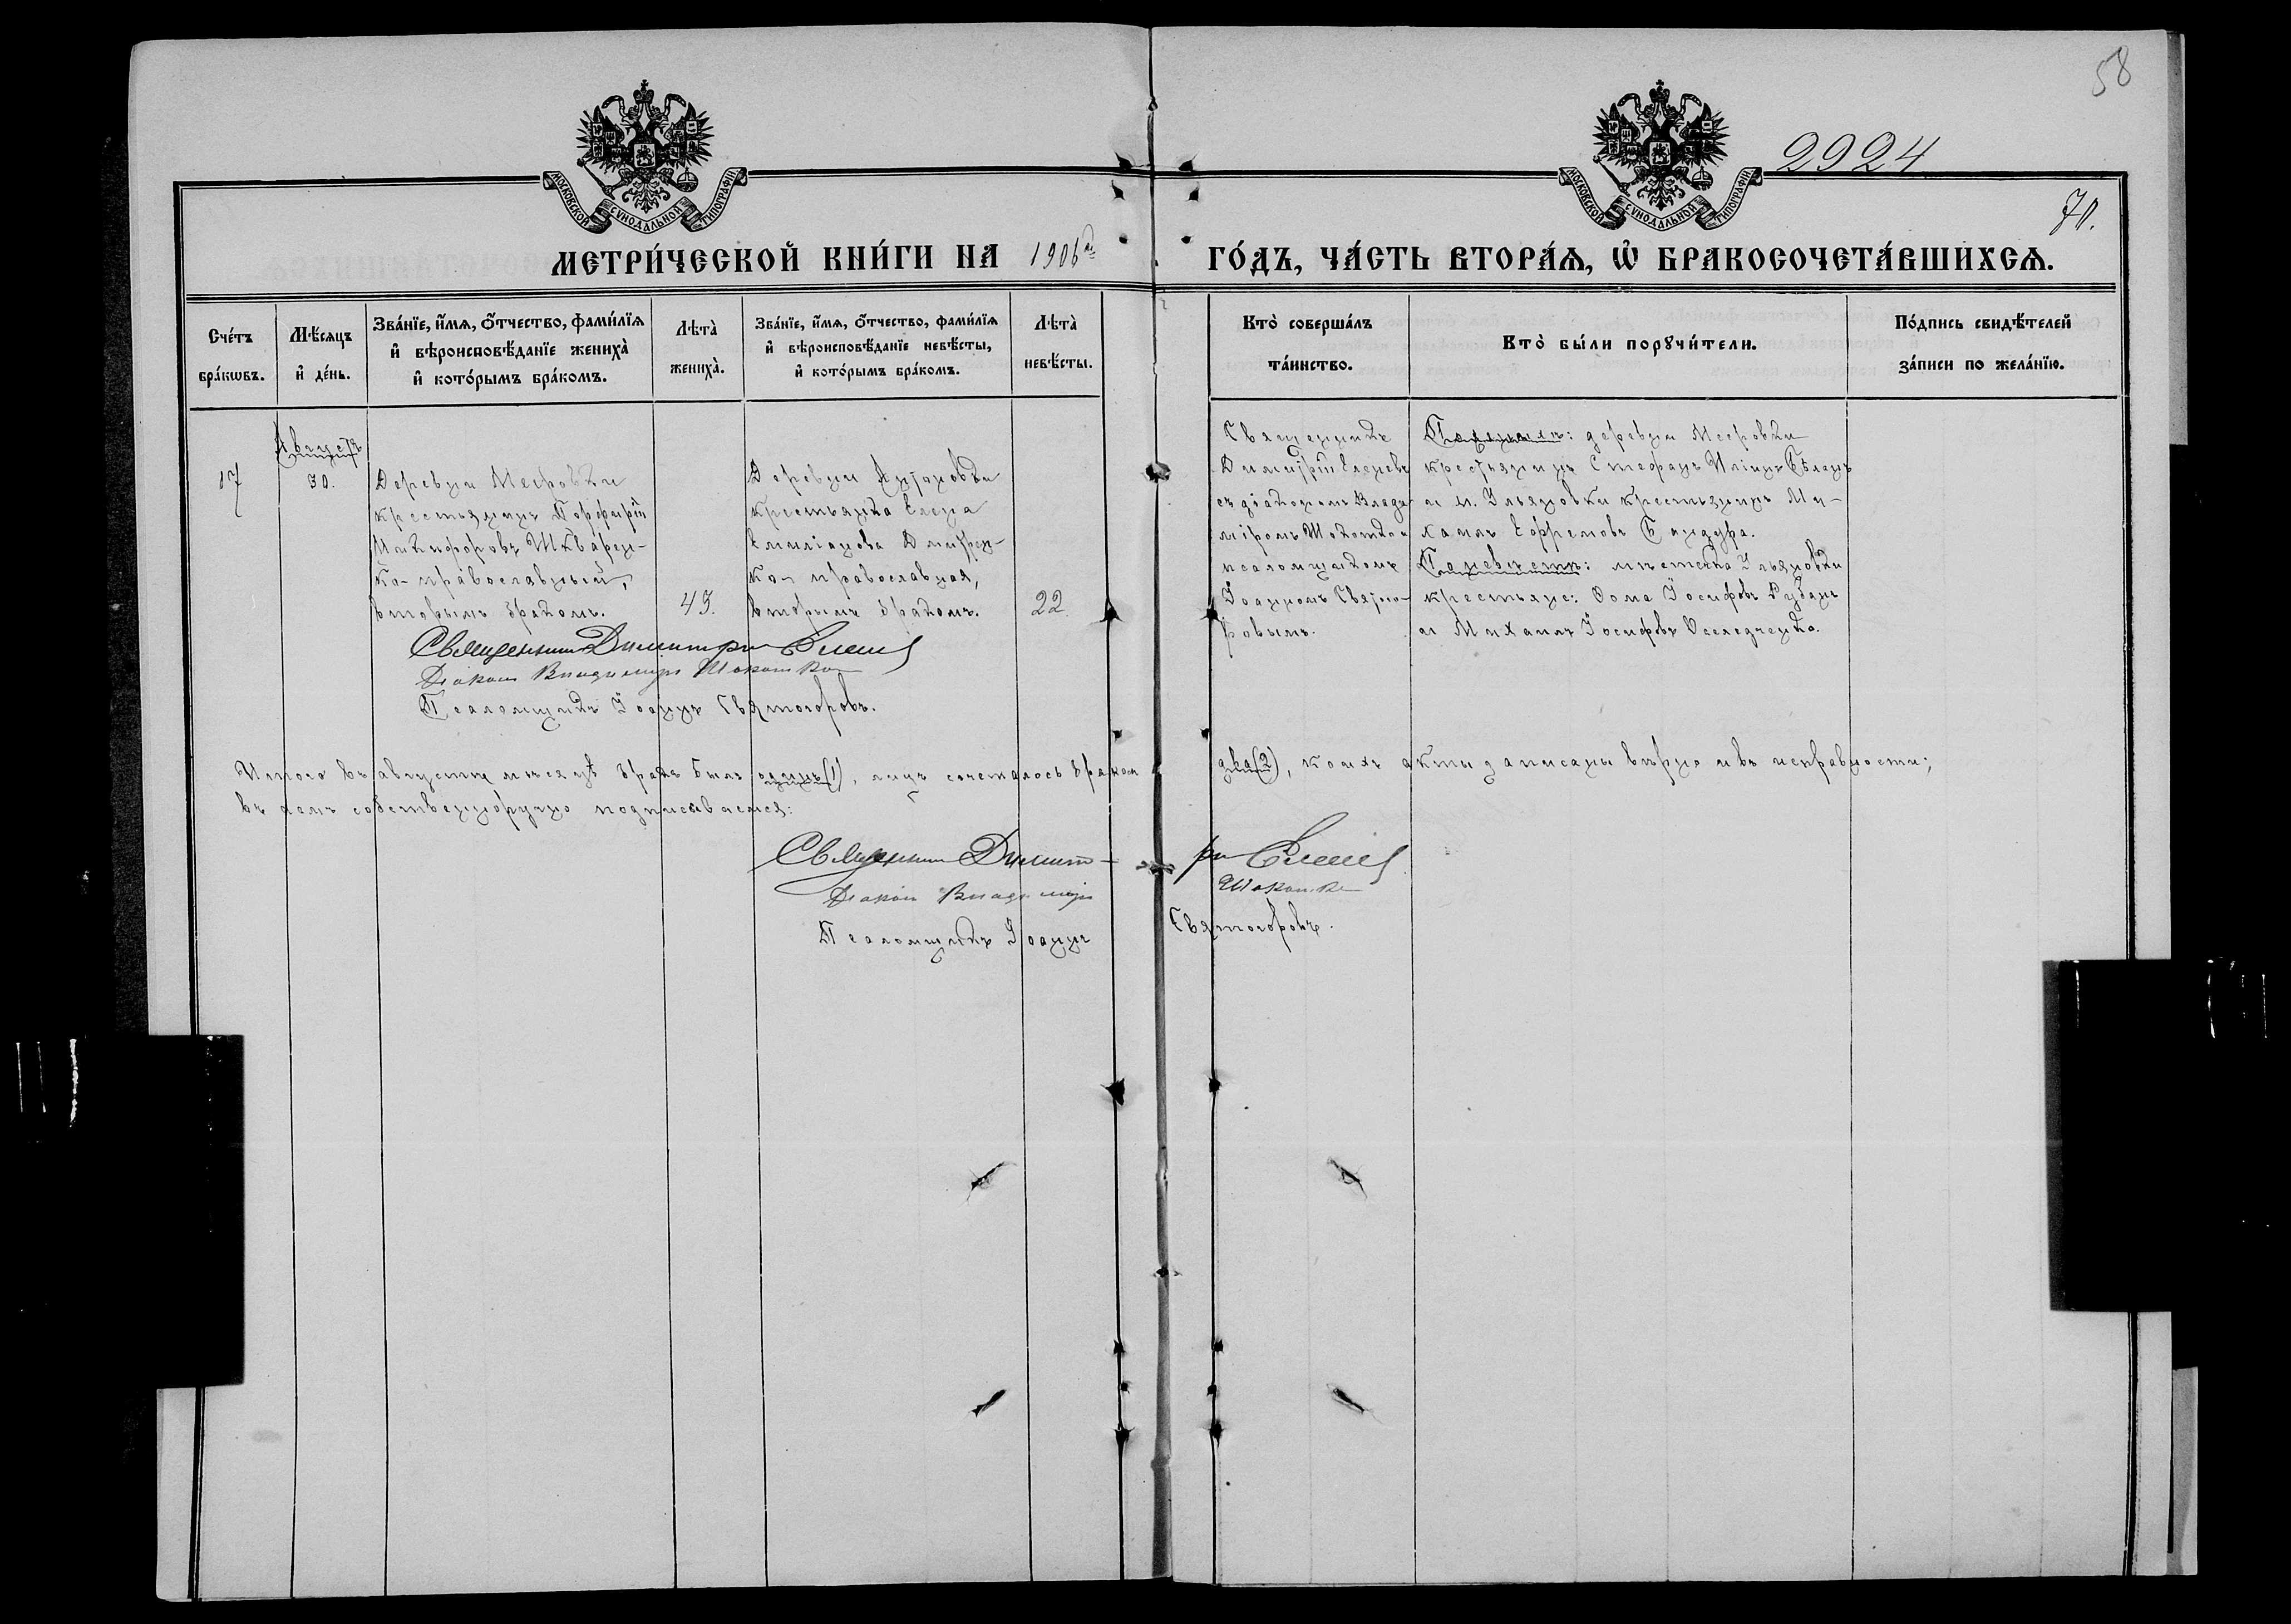 58
2924
70.
МОСКОВСКОЙ СѴНОДАЛЬНОЙ ТИПОГРАФІИ
МОСКОВСКОЙ СѴНОДАЛЬНОЙ ТИПОГРАФІИ
МЕТРИ́ЧЕСКОЙ КНИ́ГИ НА 1906й ГО́ДЪ, ЧА́СТЬ ВТОРА́Ѧ, Ѽ БРАКОСОЧЕТА́ВШИХСѦ.
Сче́тъ
бра́кѡвъ.
Мѣ́сѧцъ
и҆ де́нь.
Зва́нїе, и҆́мѧ, ѻ҆́тчество, фами́лїѧ
и҆ вѣроисповѣ́данїе жениха̀
и҆ кото́рымъ бра́комъ.
Лѣта̀
жениха̀.
Зва́нїе, и҆́мѧ, ѻ҆́тчество, фами́лїѧ
и҆ вѣроисповѣ́данїе невѣ́сты,
и҆ кото́рымъ бра́комъ.
Лѣта̀
невѣ́сты.
Кто̀ соверша́лъ
та́инство.
Кто̀ бы́ли порꙋчи́тели.
По́дпись свидѣ́телей
за́писи по жела́нїю.
Августъ
17
30.
Деревни Мееровки
крестьянинъ Порфирій
Никифоровъ Шкварен-
ко- православный,
вторымъ бракомъ.
45.
Деревни Антоновки
крестьянка Елена
Емиліанова Дмитрен-
ко- православная,
вторымъ бракомъ.
22.
Священникъ
Димитрій Еленевъ
съ діакономъ Влади-
міромъ Шокотко и
псаломщикомъ
Іоанномъ Святого-
ровымъ.
По женихѣ: деревни Мееровки
крестьянинъ Стефанъ Иліинъ Бѣланъ
и м. Ульяновки крестьянинъ Ми-
хаилъ Ефремовъ Бандура.
По невѣстѣ: мѣстечка Ульяновки
крестьяне: Ѳома Іосифовъ Рубанъ
и Михаилъ Іосифовъ Оселедченко.
Священникъ Димитрій Еленевъ
Діаконъ Владиміръ Шокотко
Псаломщикъ Іоаннъ Святогоровъ.
Итого въ августѣ мѣсяцѣ бракъ былъ одинъ (1), лицъ сочеталось бракомъ два (2), коихъ акты записаны вѣрно и въ исправности;
въ чемъ собственноручно подписываемся:
Священникъ Димитрій Еленевъ
Діаконъ Владиміръ Шокотко
Псаломщикъ Іоаннъ Святогоровъ.